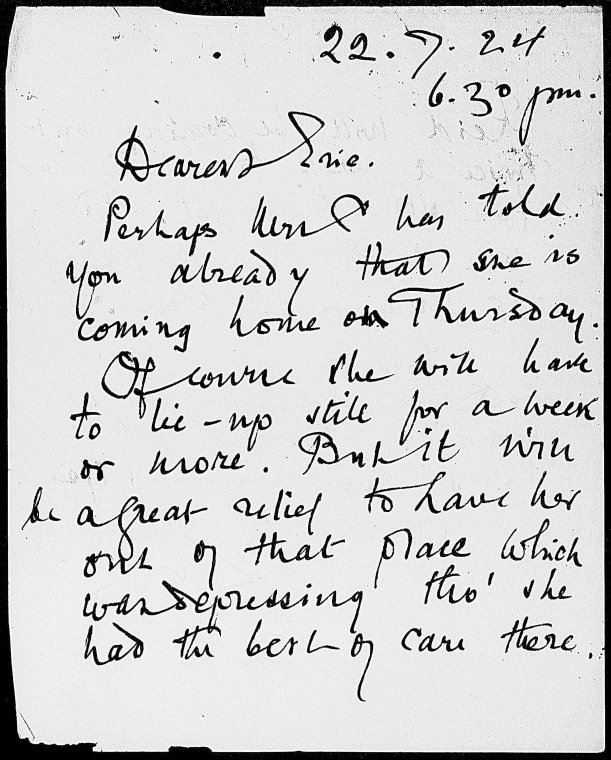 22.7.24
6.30 pm.
Dearest Eric.
Perhaps has told
you already that she is
coming home on Thursday.
Of course she will have
to lie-up still for a week
or more. But it will
be a great relief to have her
out of that place which
was depressing tho' she
had the best of care there.